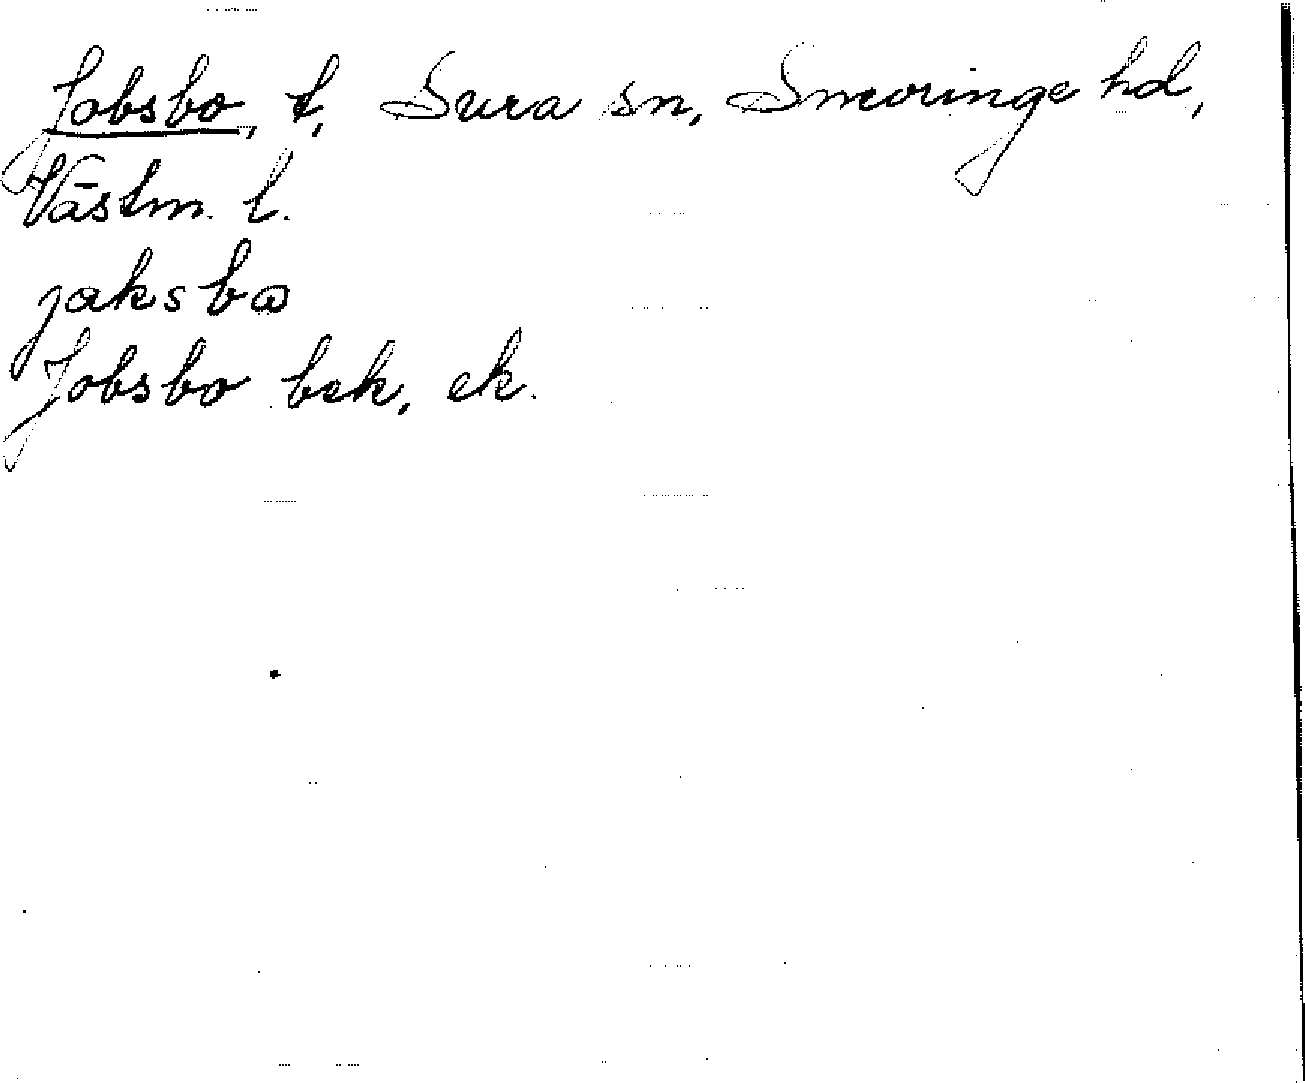 Jobsbo, t, Sura sn, Snevringe hd,
Västm. l.
jaksbω
Jobsbo bek, ek.